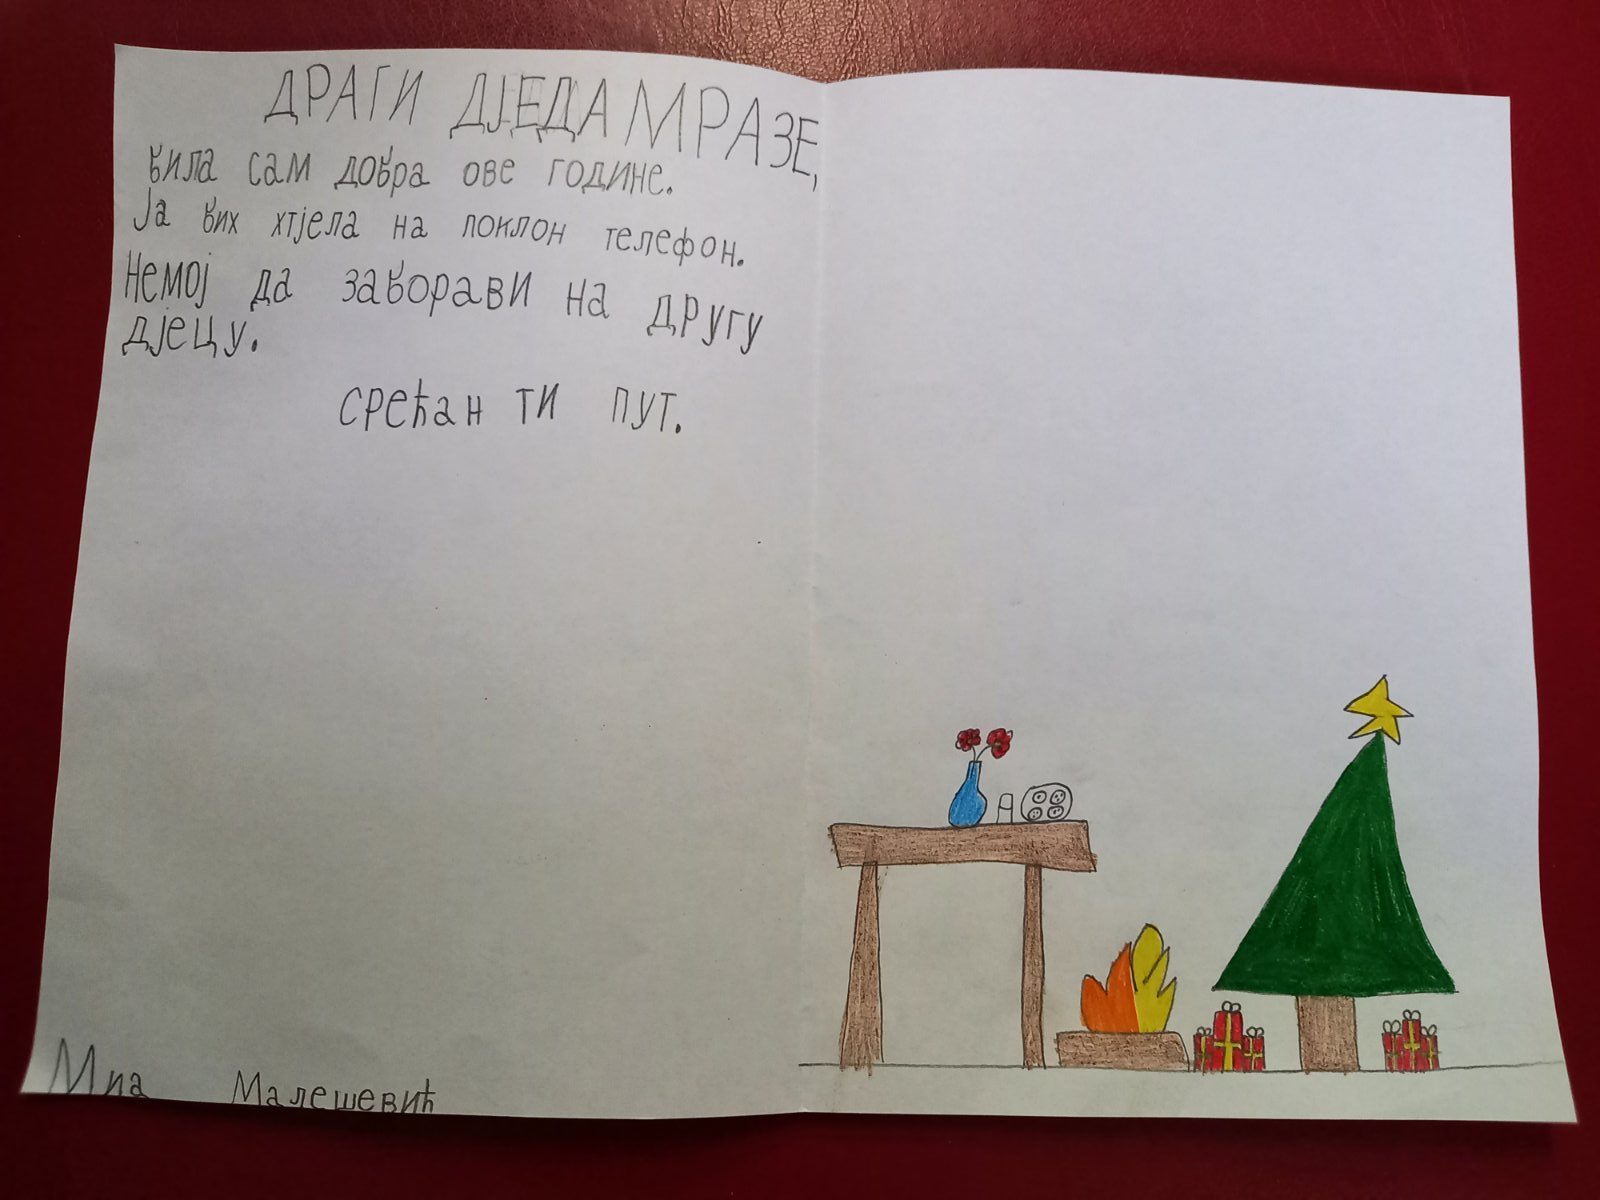 ДРАГИ ДЈЕДА МРАЗЕ,
била сам добра ове године.
Ја бих хтјела на поклон телефон.
Немој да заборави на другу
дјецу.
срећан ти пут.
Миа Малешевић